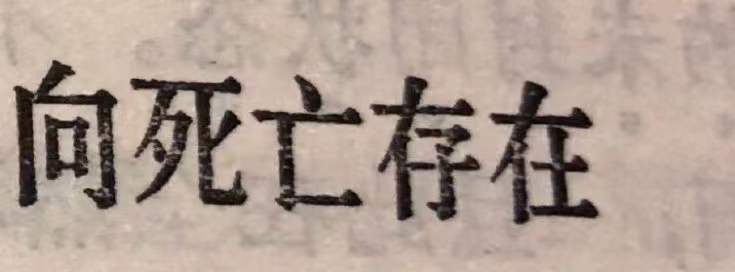 向死亡存在